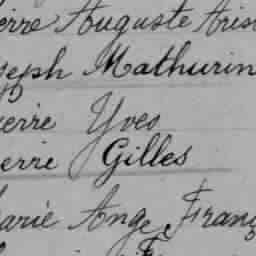 erre Auguste Aris
seph Mathurin
ierre Yves
ierre Gilles
arie Ange Franç